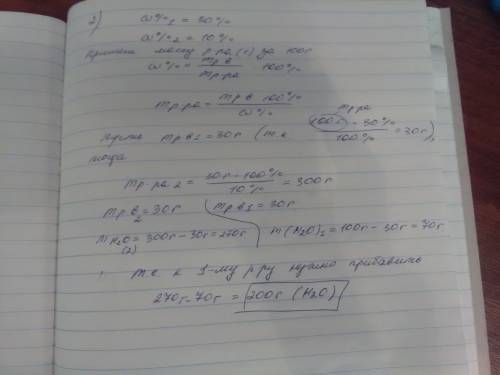 2) ω%1 = 30%
ω%2 = 10%
примем массу р-ра(1) за 100г
ω% = mр.в / mр-ра · 100%
mр-ра = mр.в · 100% / ω%
mр-ра
пусть mр.в1 = 30г (т.к 100г · 30% / 100% = 30г),
тогда
mр-ра2 = 30г · 100% / 10% = 300г
mр.в2 = 30г mр.в1 = 30г
mH2O(2) = 300г - 30г = 270г m(H2O)1 = 100г - 30г = 70г
т.е к 1-му р-ру нужно прибавить
270г - 70г = 200г (H2O)